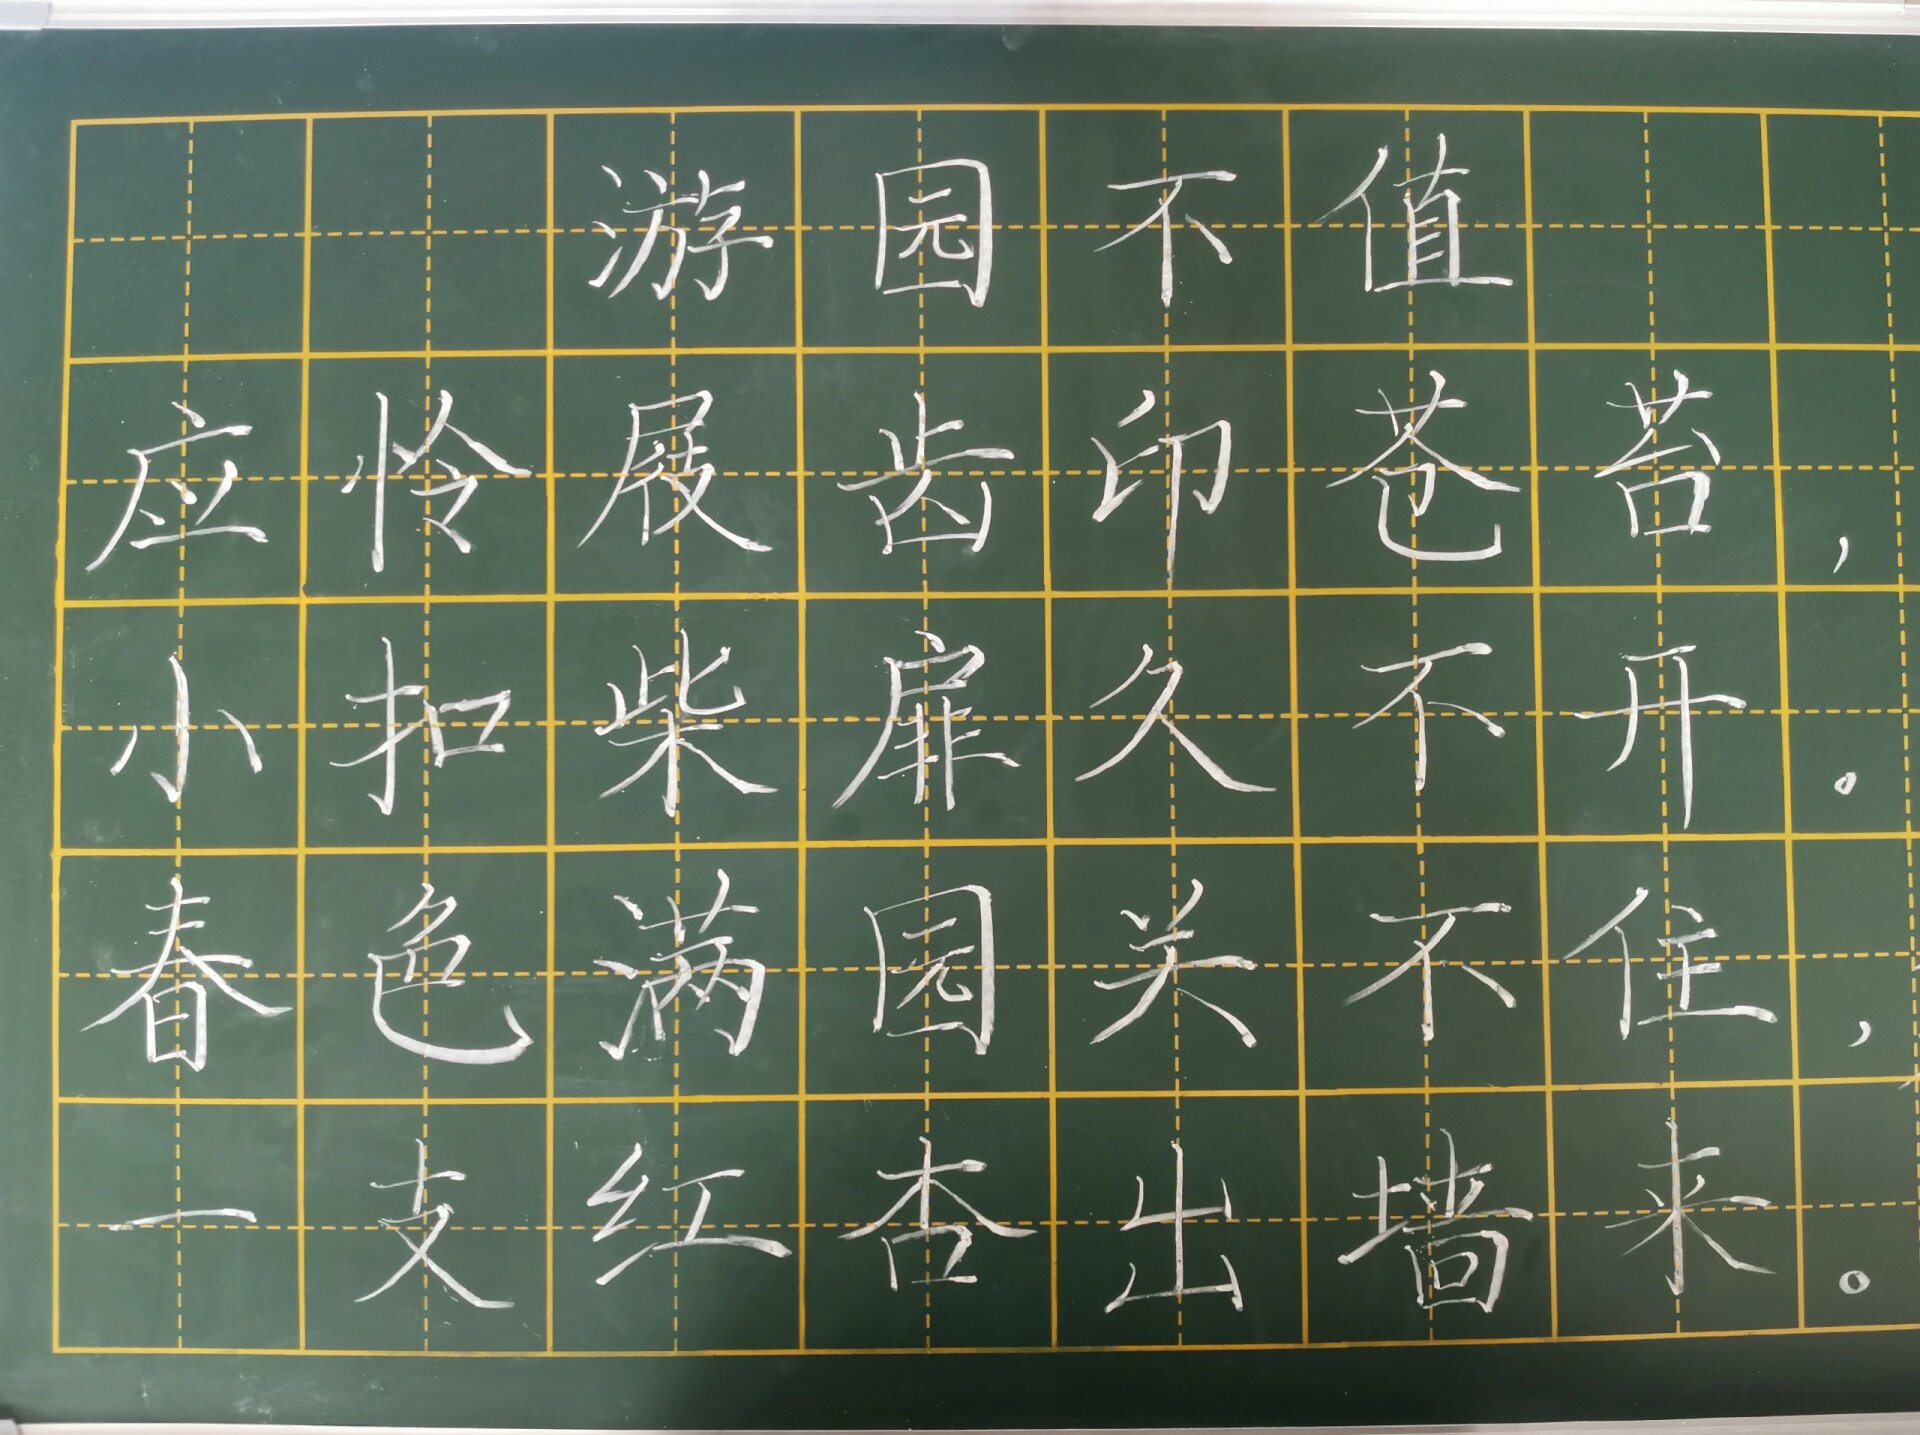 游园不值
应怜屐齿印苍苔，
小扣柴扉久不开。
春色满园关不住，
一支红杏出墙来。